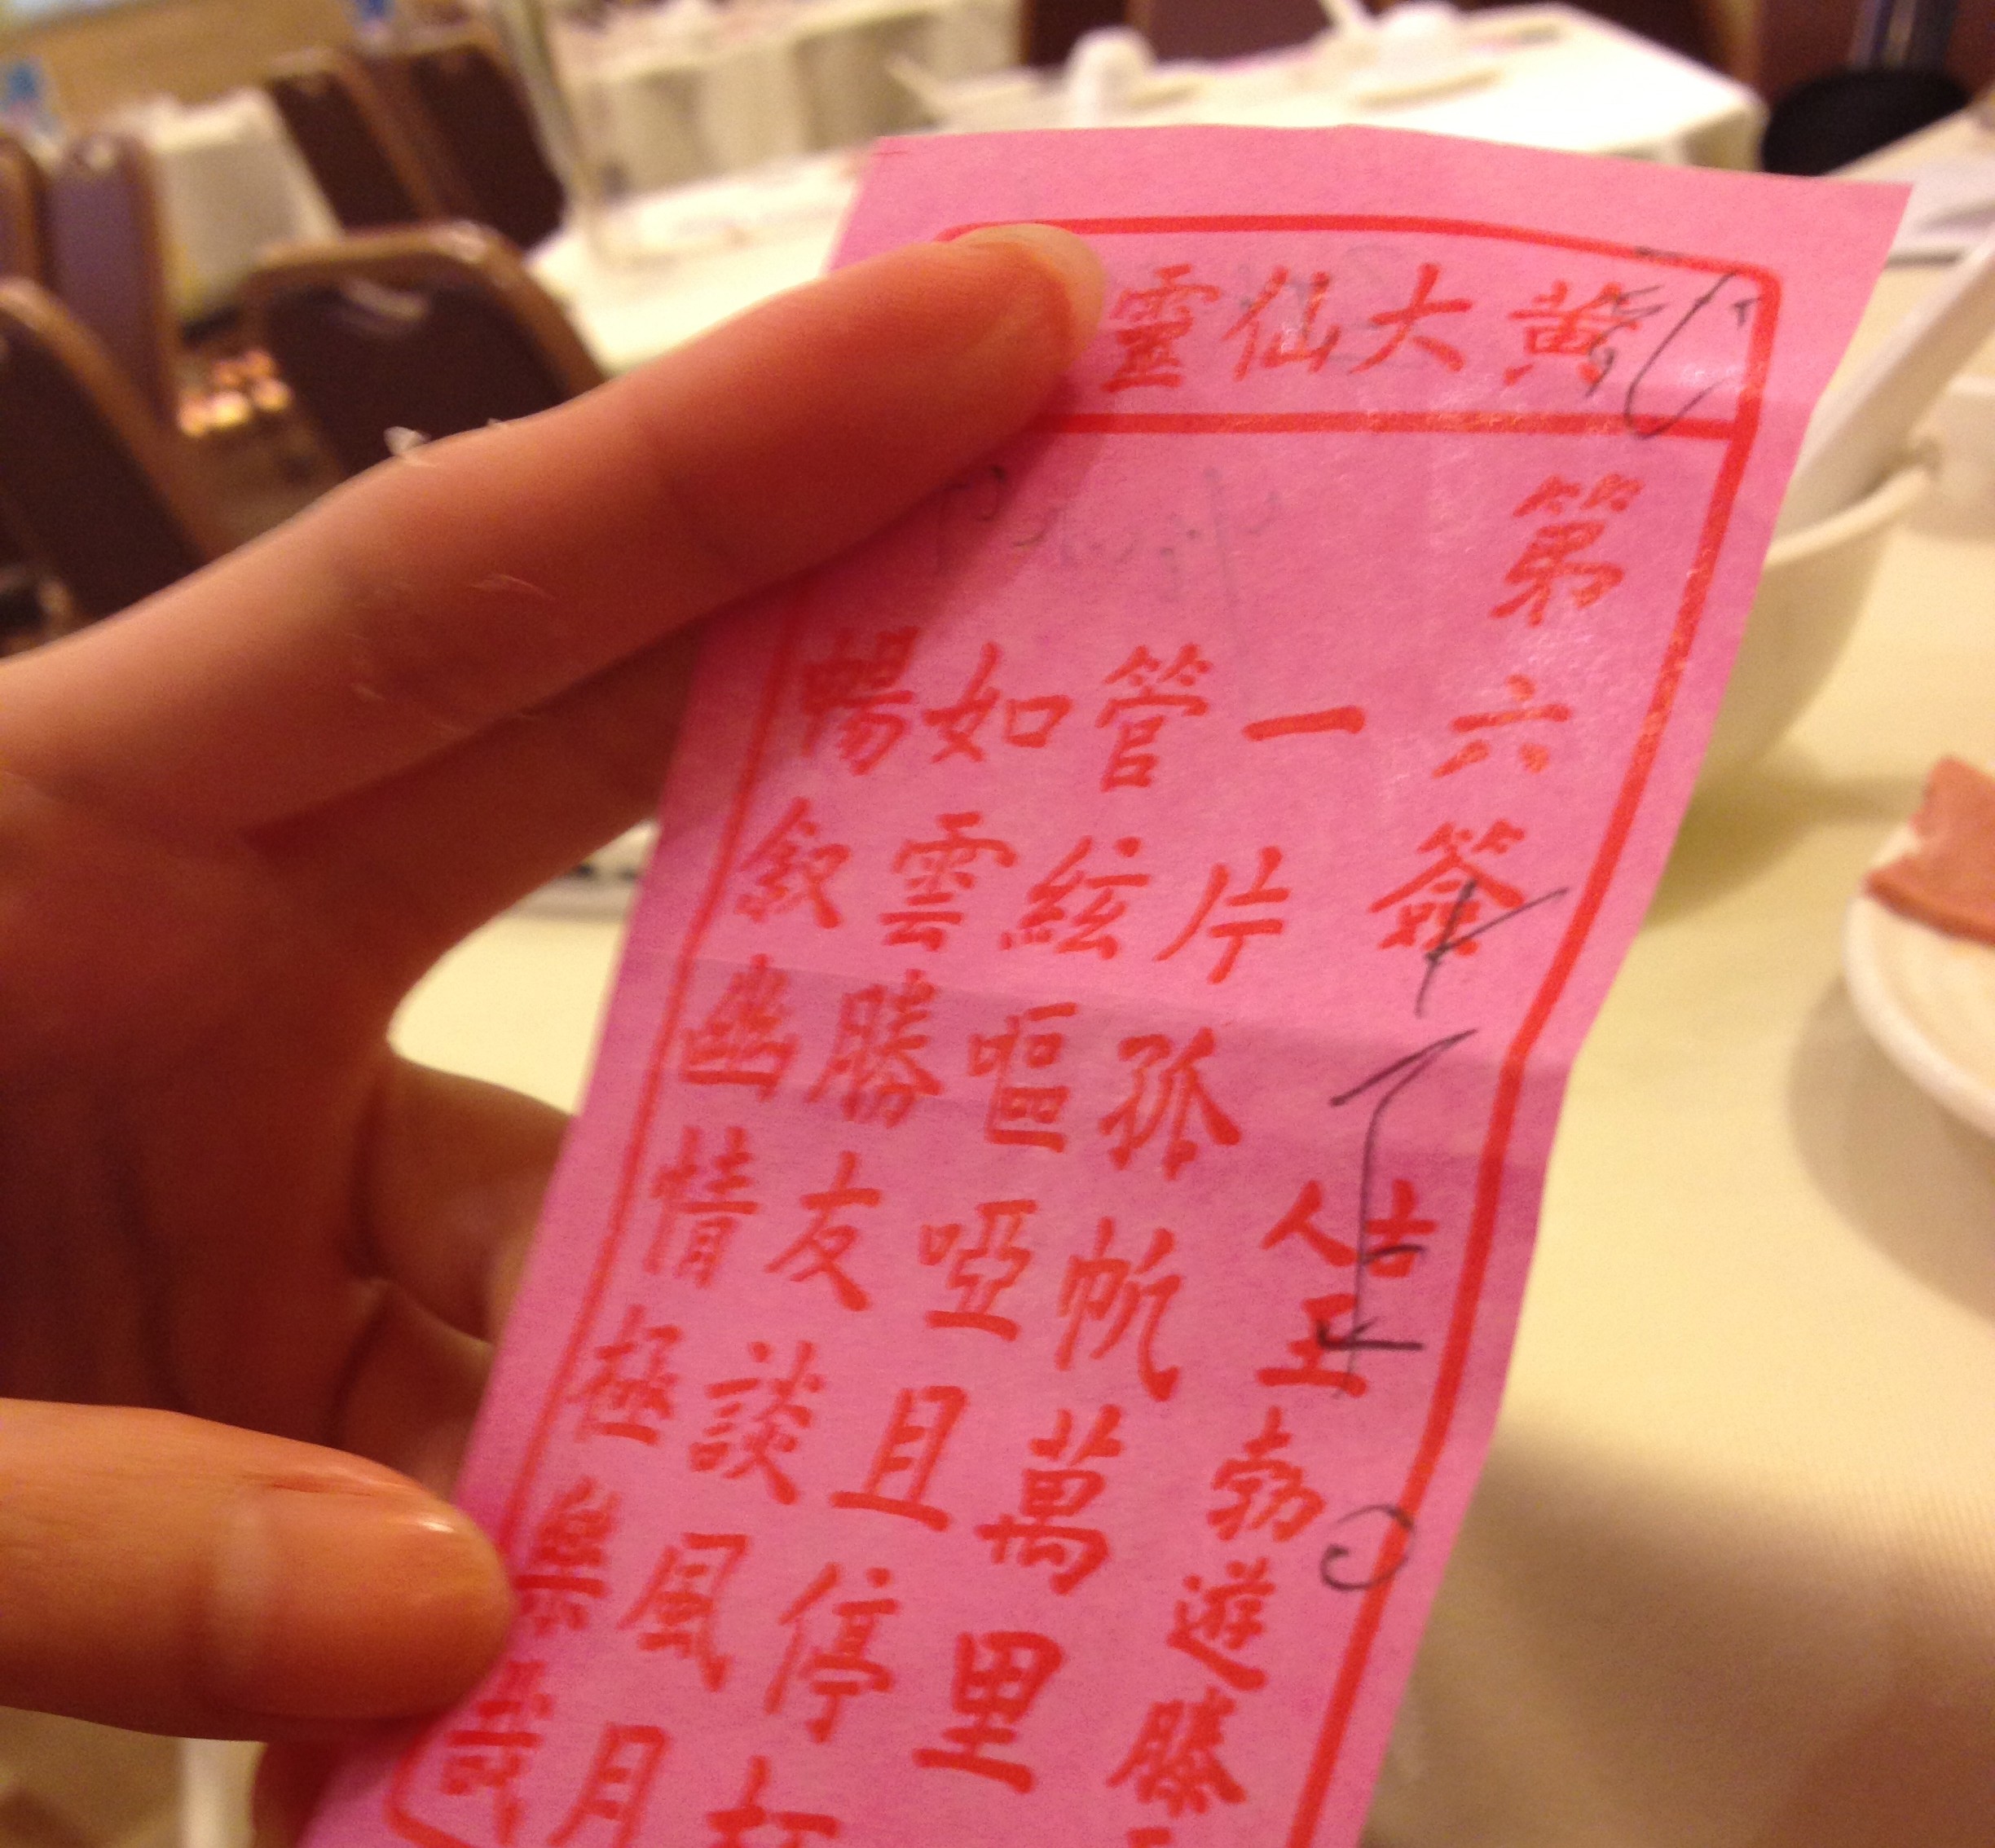 黃大仙靈
第六簽
古人
王勃遊滕
一片孤帆萬里
管絃嘔啞且停
如雲勝友談風月
暢敘幽情極樂